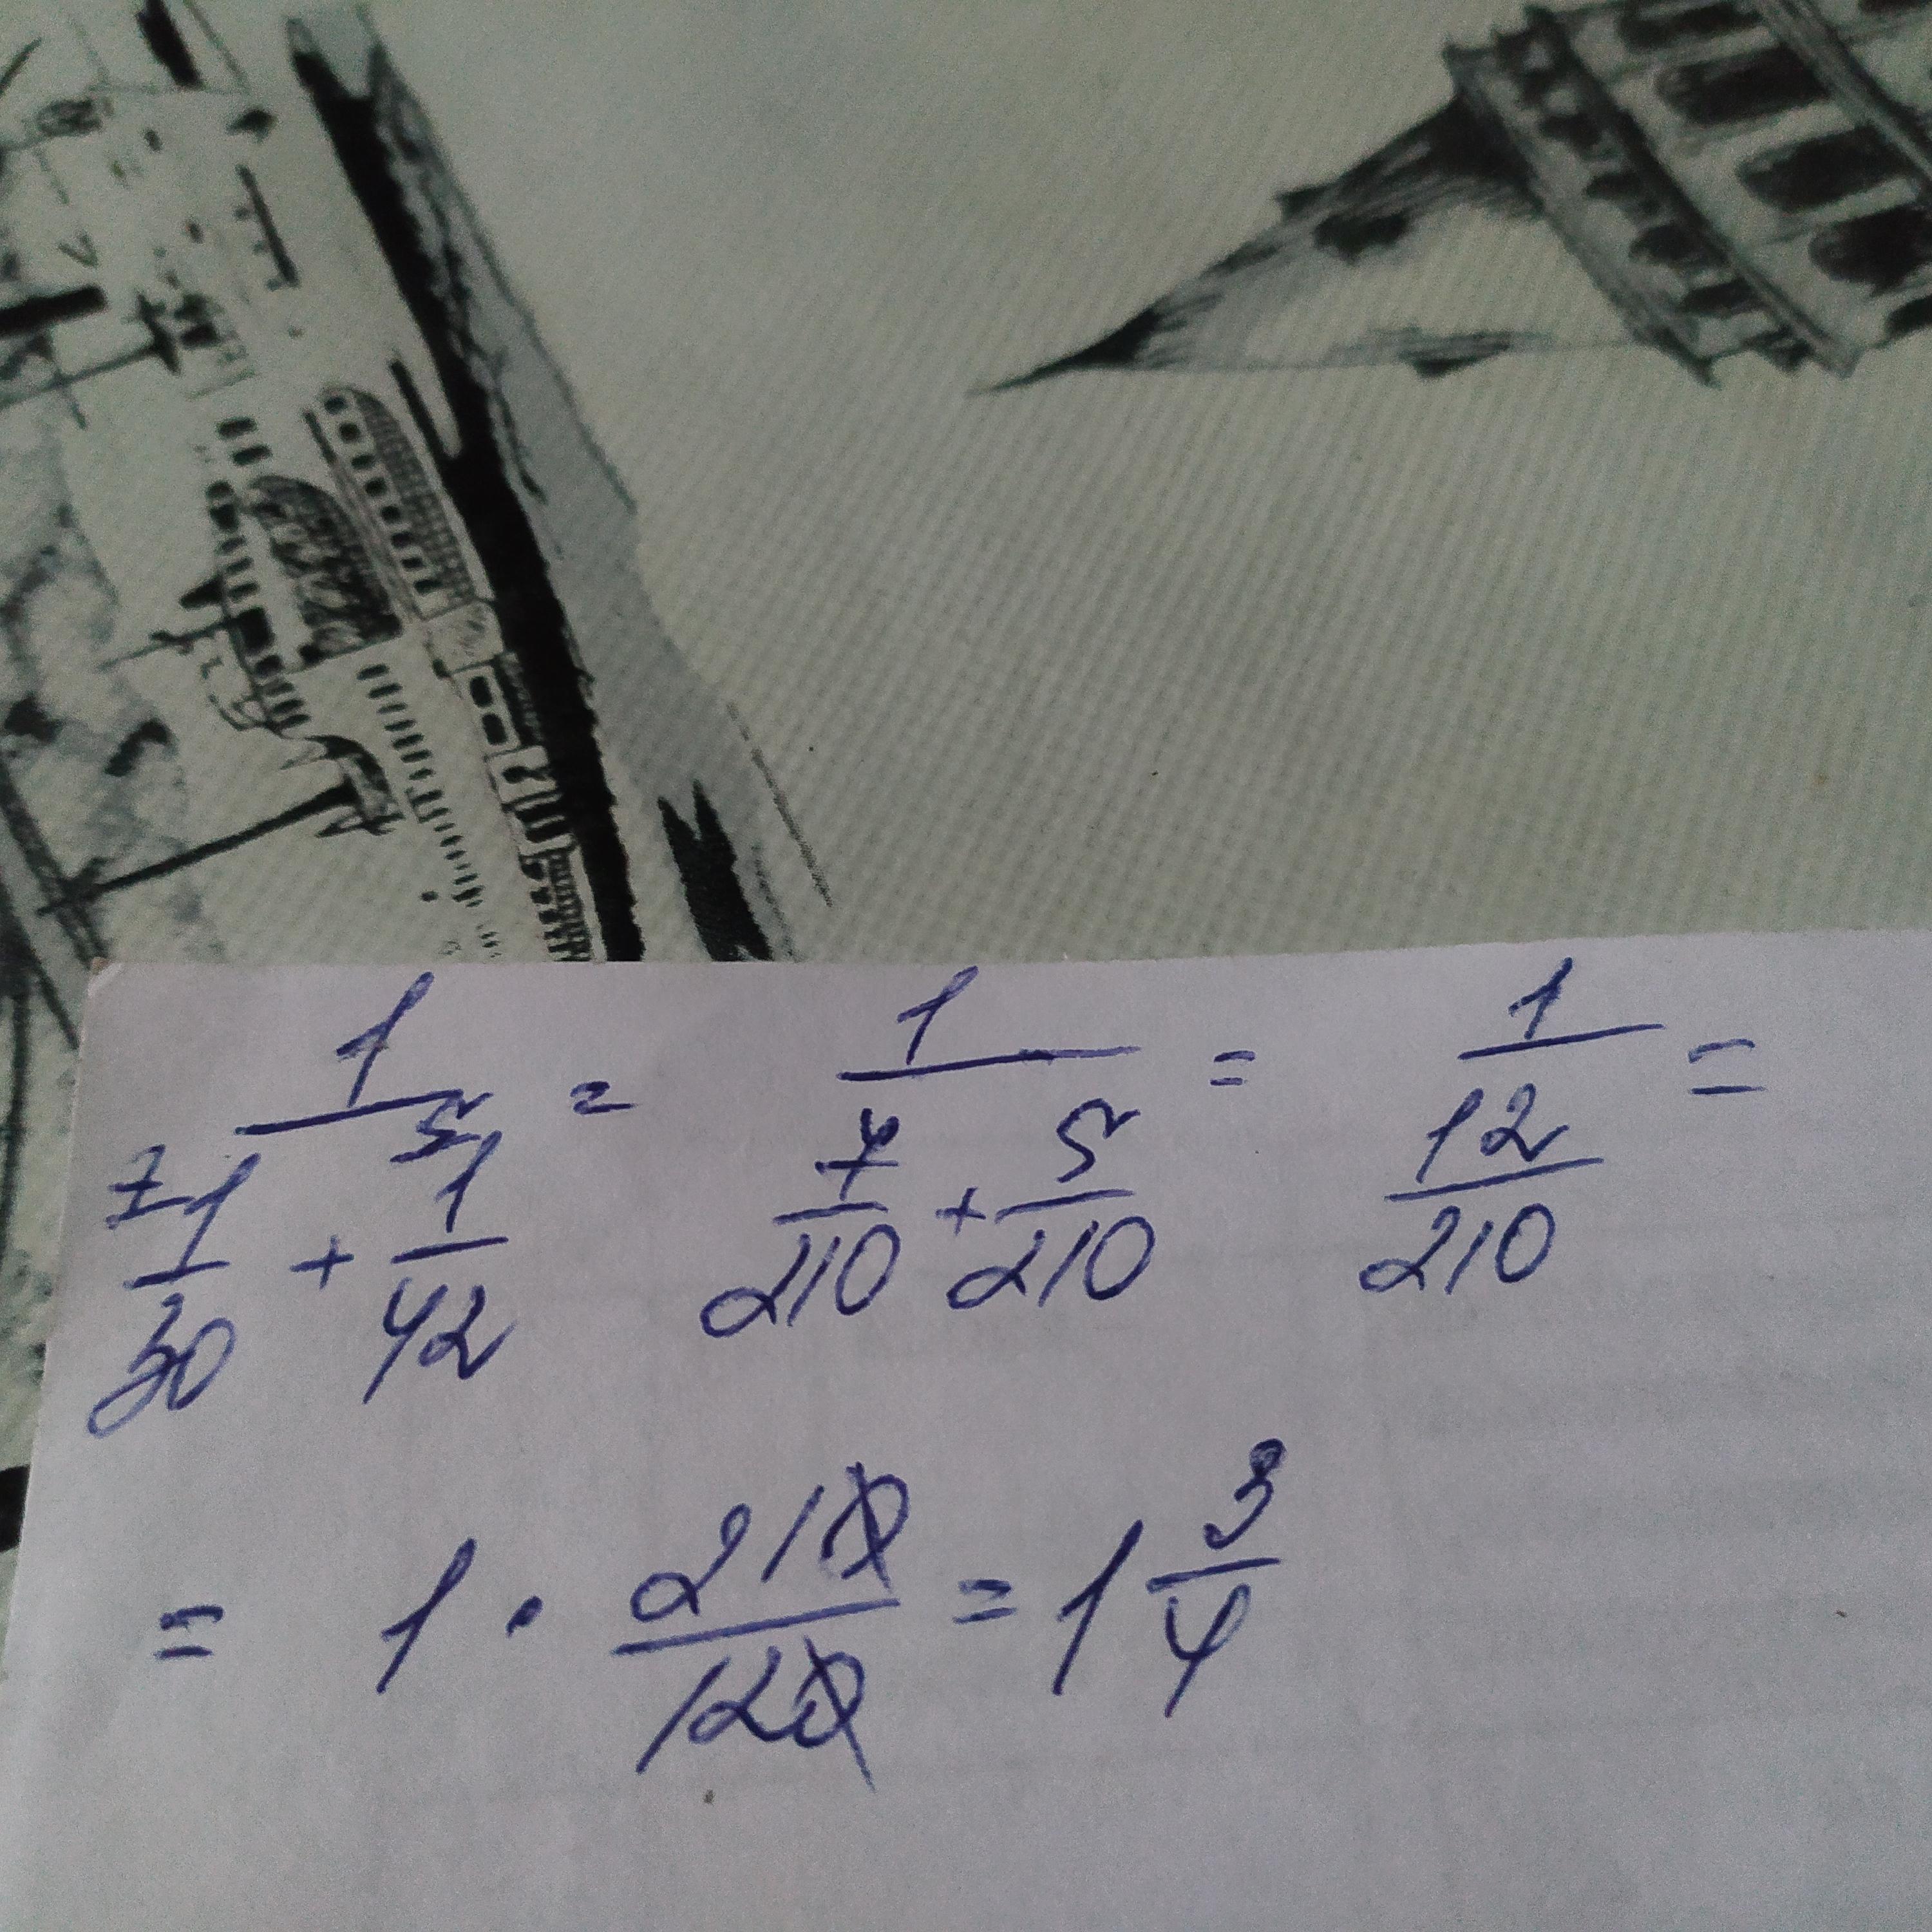 1/(⁷1/30 + ⁵1/42) = 1/(7/210 + 5/210) = 1/(12/210) =
= 1 · 210/120 = 1 3/4